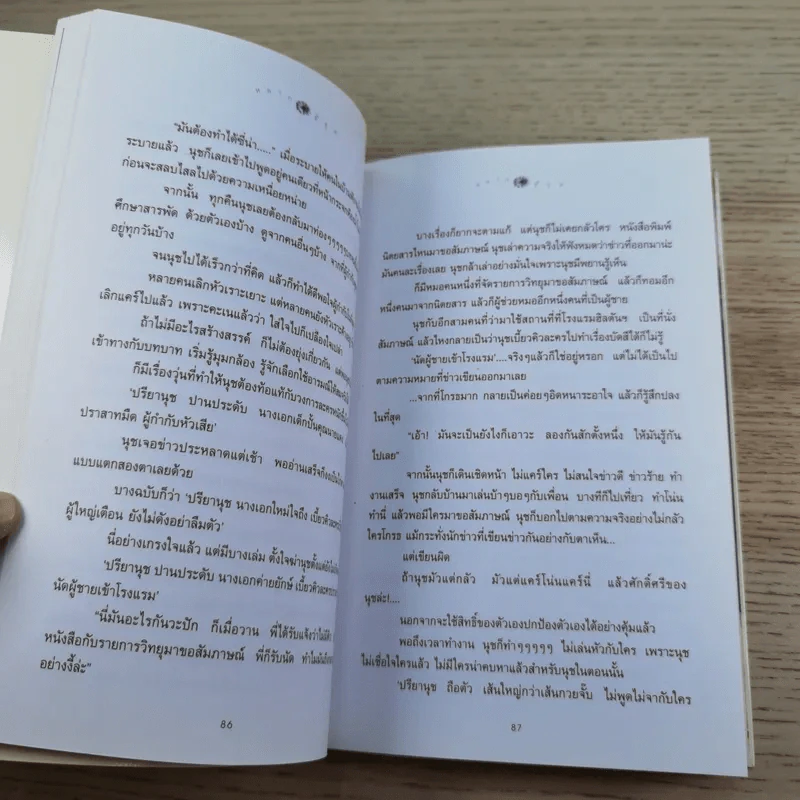 "มันต้องทำได้ซี่น่า....." เมื่อระบายให้คนในบ้าน
ระบายแล้ว นุชก็เลยเข้าไปพูดอยู่คนเดียวที่หน้ากระจก
ก่อนจะสลบไสลไปด้วยความเหนื่อยหน่าย
จากนั้น ทุกคืนนุชเลยต้องกลับมาท่องๆๆๆๆ
ศึกษาสารพัด ด้วยตัวเองบ้าง ดูจากคนอื่นๆบ้าง
อยู่ทุกวันบ้าง
จนนุชไปได้เร็วกว่าที่คิด แล้วก็ทำให้ดีพอใจผู้กำกับ
หลายคนเลิกหัวเราะเยาะ แต่หลายคนยังหัวเราะ
เลิกแคร์ไปแล้ว เพราะคะเนแล้วว่า ใส่ใจไปก็เปลืองใจเปล่า
ถ้าไม่มีอะไรสร้างสรรค์ ก็ไม่ต้องยุ่งเกี่ยวกัน
เข้าทางกับบทบาท เริ่มรู้มุมกล้อง รู้จักเลือกใช้อารมณ์
ก็มีเรื่องวุ่นที่ทำให้นุชต้องท้อแท้กับวงการละคร
'ปรียานุช ปานประดับ นางเอกเด็กปั้นคุณนาย
ปราสาทมืด ผู้กำกับหัวเสีย'
นุชเจอข่าวประหลาดแต่เช้า พออ่านเสร็จถึง
แบบแตกสองตาเลยด้วย
บางฉบับก็ว่า 'ปรียานุช นางเอกใหม่ใจถึง เบี้ยวคิว
ผู้ใหญ่เตือน ยังไม่ดังอย่าลืมตัว'
นี่อย่างเกรงใจแล้ว แต่มีบางเล่ม ตั้งใจฆ่านุชตั้งแต่
'ปรียานุช ปานประดับ นางเอกค่ายยักษ์ เบี้ยวคิวละคร
นัดผู้ชายเข้าโรงแรม'
"นี่มันอะไรกันวะปัก ก็เมื่อวาน พี่ได้รับแจ้งว่า
หนังสือกับรายการวิทยุมาขอสัมภาษณ์ พี่ก็รับนัด
อย่างงี้ล่ะ"
86
บางเรื่องก็ยากจะตามแก้ แต่นุชก็ไม่เคยกลัวใคร หนังสือพิมพ์
นิตยสารไหนมาขอสัมภาษณ์ นุชเล่าความจริงให้ฟังหมดว่าข่าวที่ออกมาน่ะ
มันคนละเรื่องเลย นุชกล้าเล่าอย่างมั่นใจเพราะนุชมีพยานรู้เห็น
ก็มีหมอคนหนึ่งที่จัดรายการวิทยุมาขอสัมภาษณ์ แล้วก็ทอมอีก
หนึ่งคนมาจากนิตยสาร แล้วก็ผู้ช่วยหมออีกหนึ่งคนที่เป็นผู้ชาย
นุชกับอีกสามคนที่ว่ามาใช้สถานที่ที่โรงแรมฮิลตันฯ เป็นที่นั่ง
สัมภาษณ์ แล้วไหงกลายเป็นว่านุชเบี้ยวคิวละครไปทำเรื่องบัดสีได้ก็ไม่รู้
'นัดผู้ชายเข้าโรงแรม'....จริงๆแล้วก็ใช่อยู่หรอก แต่ไม่ได้เป็นไป
ตามความหมายที่ข่าวเขียนออกมาเลย
...จากที่โกรธมาก กลายเป็นค่อยๆอิดหนาระอาใจ แล้วก็รู้สึกปลง
ในที่สุด
"เอ้า! มันจะเป็นยังไงก็เอาวะ ลองกันสักตั้งหนึ่ง ให้มันรู้กัน
ไปเลย"
จากนั้นนุชก็เดินเชิดหน้า ไม่แคร์ใคร ไม่สนใจข่าวดี ข่าวร้าย ทำ
งานเสร็จ นุชกลับบ้านมาเล่นบ้าๆบอๆกับเพื่อน บางทีก็ไปเที่ยว ทำโน่น
ทำนี่ แล้วพอมีใครมาขอสัมภาษณ์ นุชก็บอกไปตามความจริงอย่างไม่กลัว
ใครโกรธ แม้กระทั่งนักข่าวที่เขียนข่าวกันอย่างกับตาเห็น...
แต่เขียนผิด
ถ้านุชมัวแต่กลัว มัวแต่แคร์โน่นแคร์นี่ แล้วศักดิ์ศรีของ
นุชล่ะ!....
นอกจากจะใช้สิทธิ์ของตัวเองปกป้องตัวเองได้อย่างคุ้มแล้ว
พอถึงเวลาทำงาน นุชก็ทำๆๆๆๆ ไม่เล่นหัวกับใคร เพราะนุช
ไม่เชื่อใจใครแล้ว ไม่มีใครน่าคบหาแล้วสำหรับนุชในตอนนั้น
'ปรียานุช ถือตัว เส้นใหญ่กว่าเส้นกวยจั๊บ ไม่พูดไม่จากับใคร
87